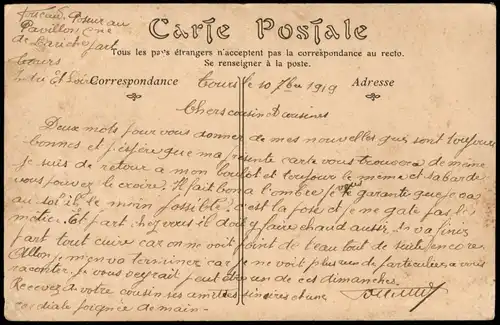 Carte Postale
Tous les pays étrangers n'acceptent pas la correspondance au recto.
Se renseigner à la poste.
Poseur au
Pavillon
de Lariche part
Tours
Indre Et Loire
Correspondance
Tours le 10 7bre 1919
Adresse
Chers cousin et cousines
Deux mots pour vous donner de mes nouvelles qui sont toujours
bonnes et j'espère que ma présente carte vous trouvera de même
je suis de retour a mon boulot et toujour le meme et sabarde
vous pouvez le croire. Il fait bon a l'ombre je vous garantie que
au sol il le moin possible. c'est la pose et je ne gate pas les
metier. Et part chez vous il doit y faire chaud aussi. va finir
part tout cuire car on ne voit point de l'eau tout de suite encore
Allon je men va terminer car je ne voit plus rien de particulier a vous
raconter. Je vous veyrait peut être un de ces dimanches.
Recevez de votre cousin ses amitiés sincères et une
cordiale poignée de main.